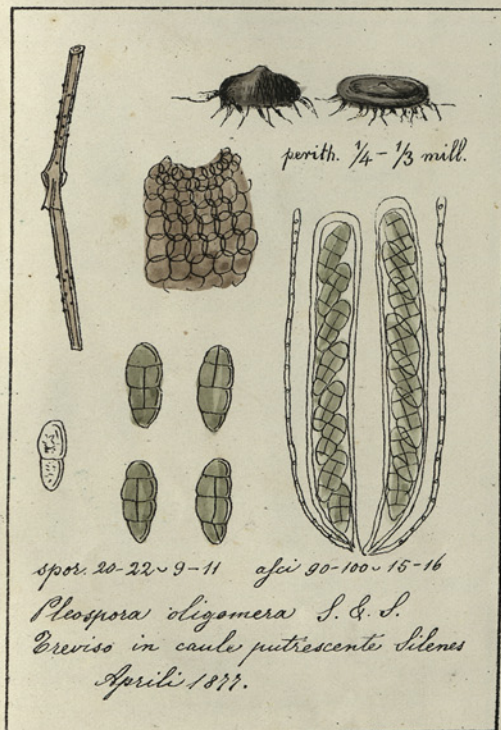 perith. 1/4 - 1/3 mill.
spor. 20-22 ~ 9-11 asci 90-100 ~ 15-16
Pleospora oligomera S. & S.
Treviso in caule putrescente Silenes
Aprili 1877.